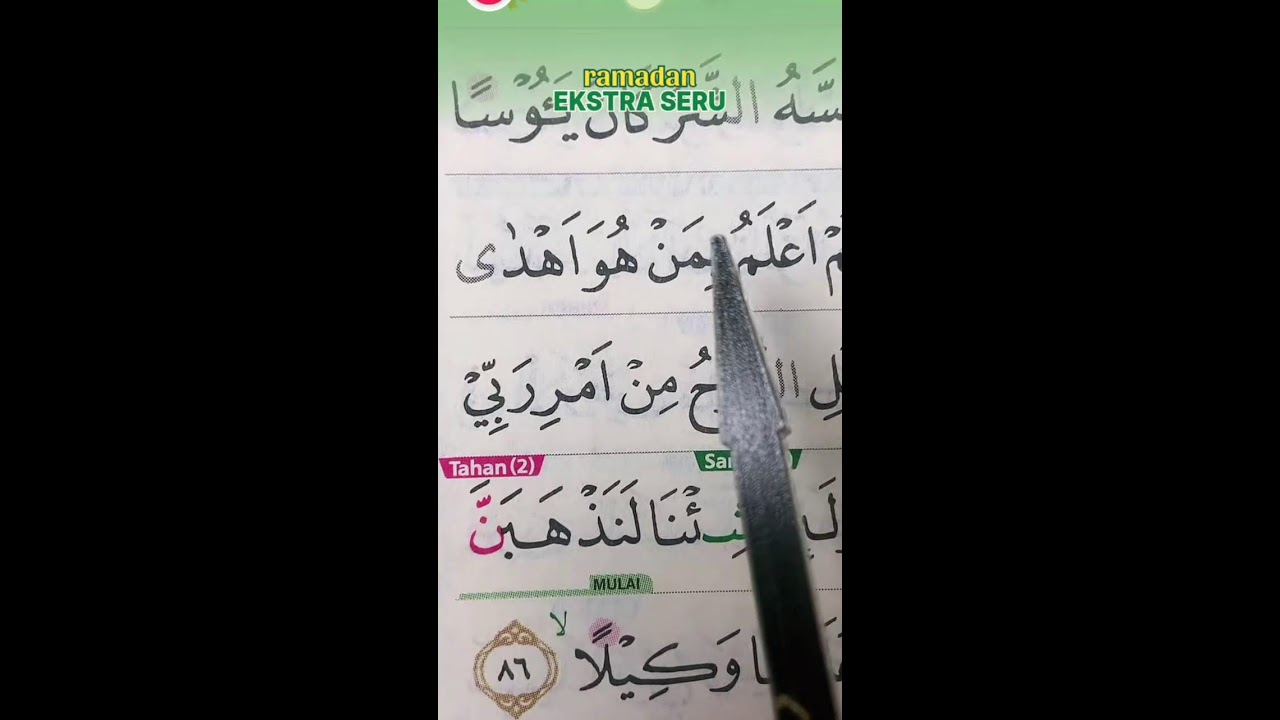 ramadan
EKSTRA SERU
السَّرُّ كَانَ يَـُٔوْسًا
اَعْلَمُ بِمَنْ هُوَ اَهْدٰى
مِنْ اَمْرِ رَبِّيْ
Tahan (2)
شِئْنَا لَنَذْهَبَنَّ
MULAI
وَكِيْلًا ۙ ٨٦